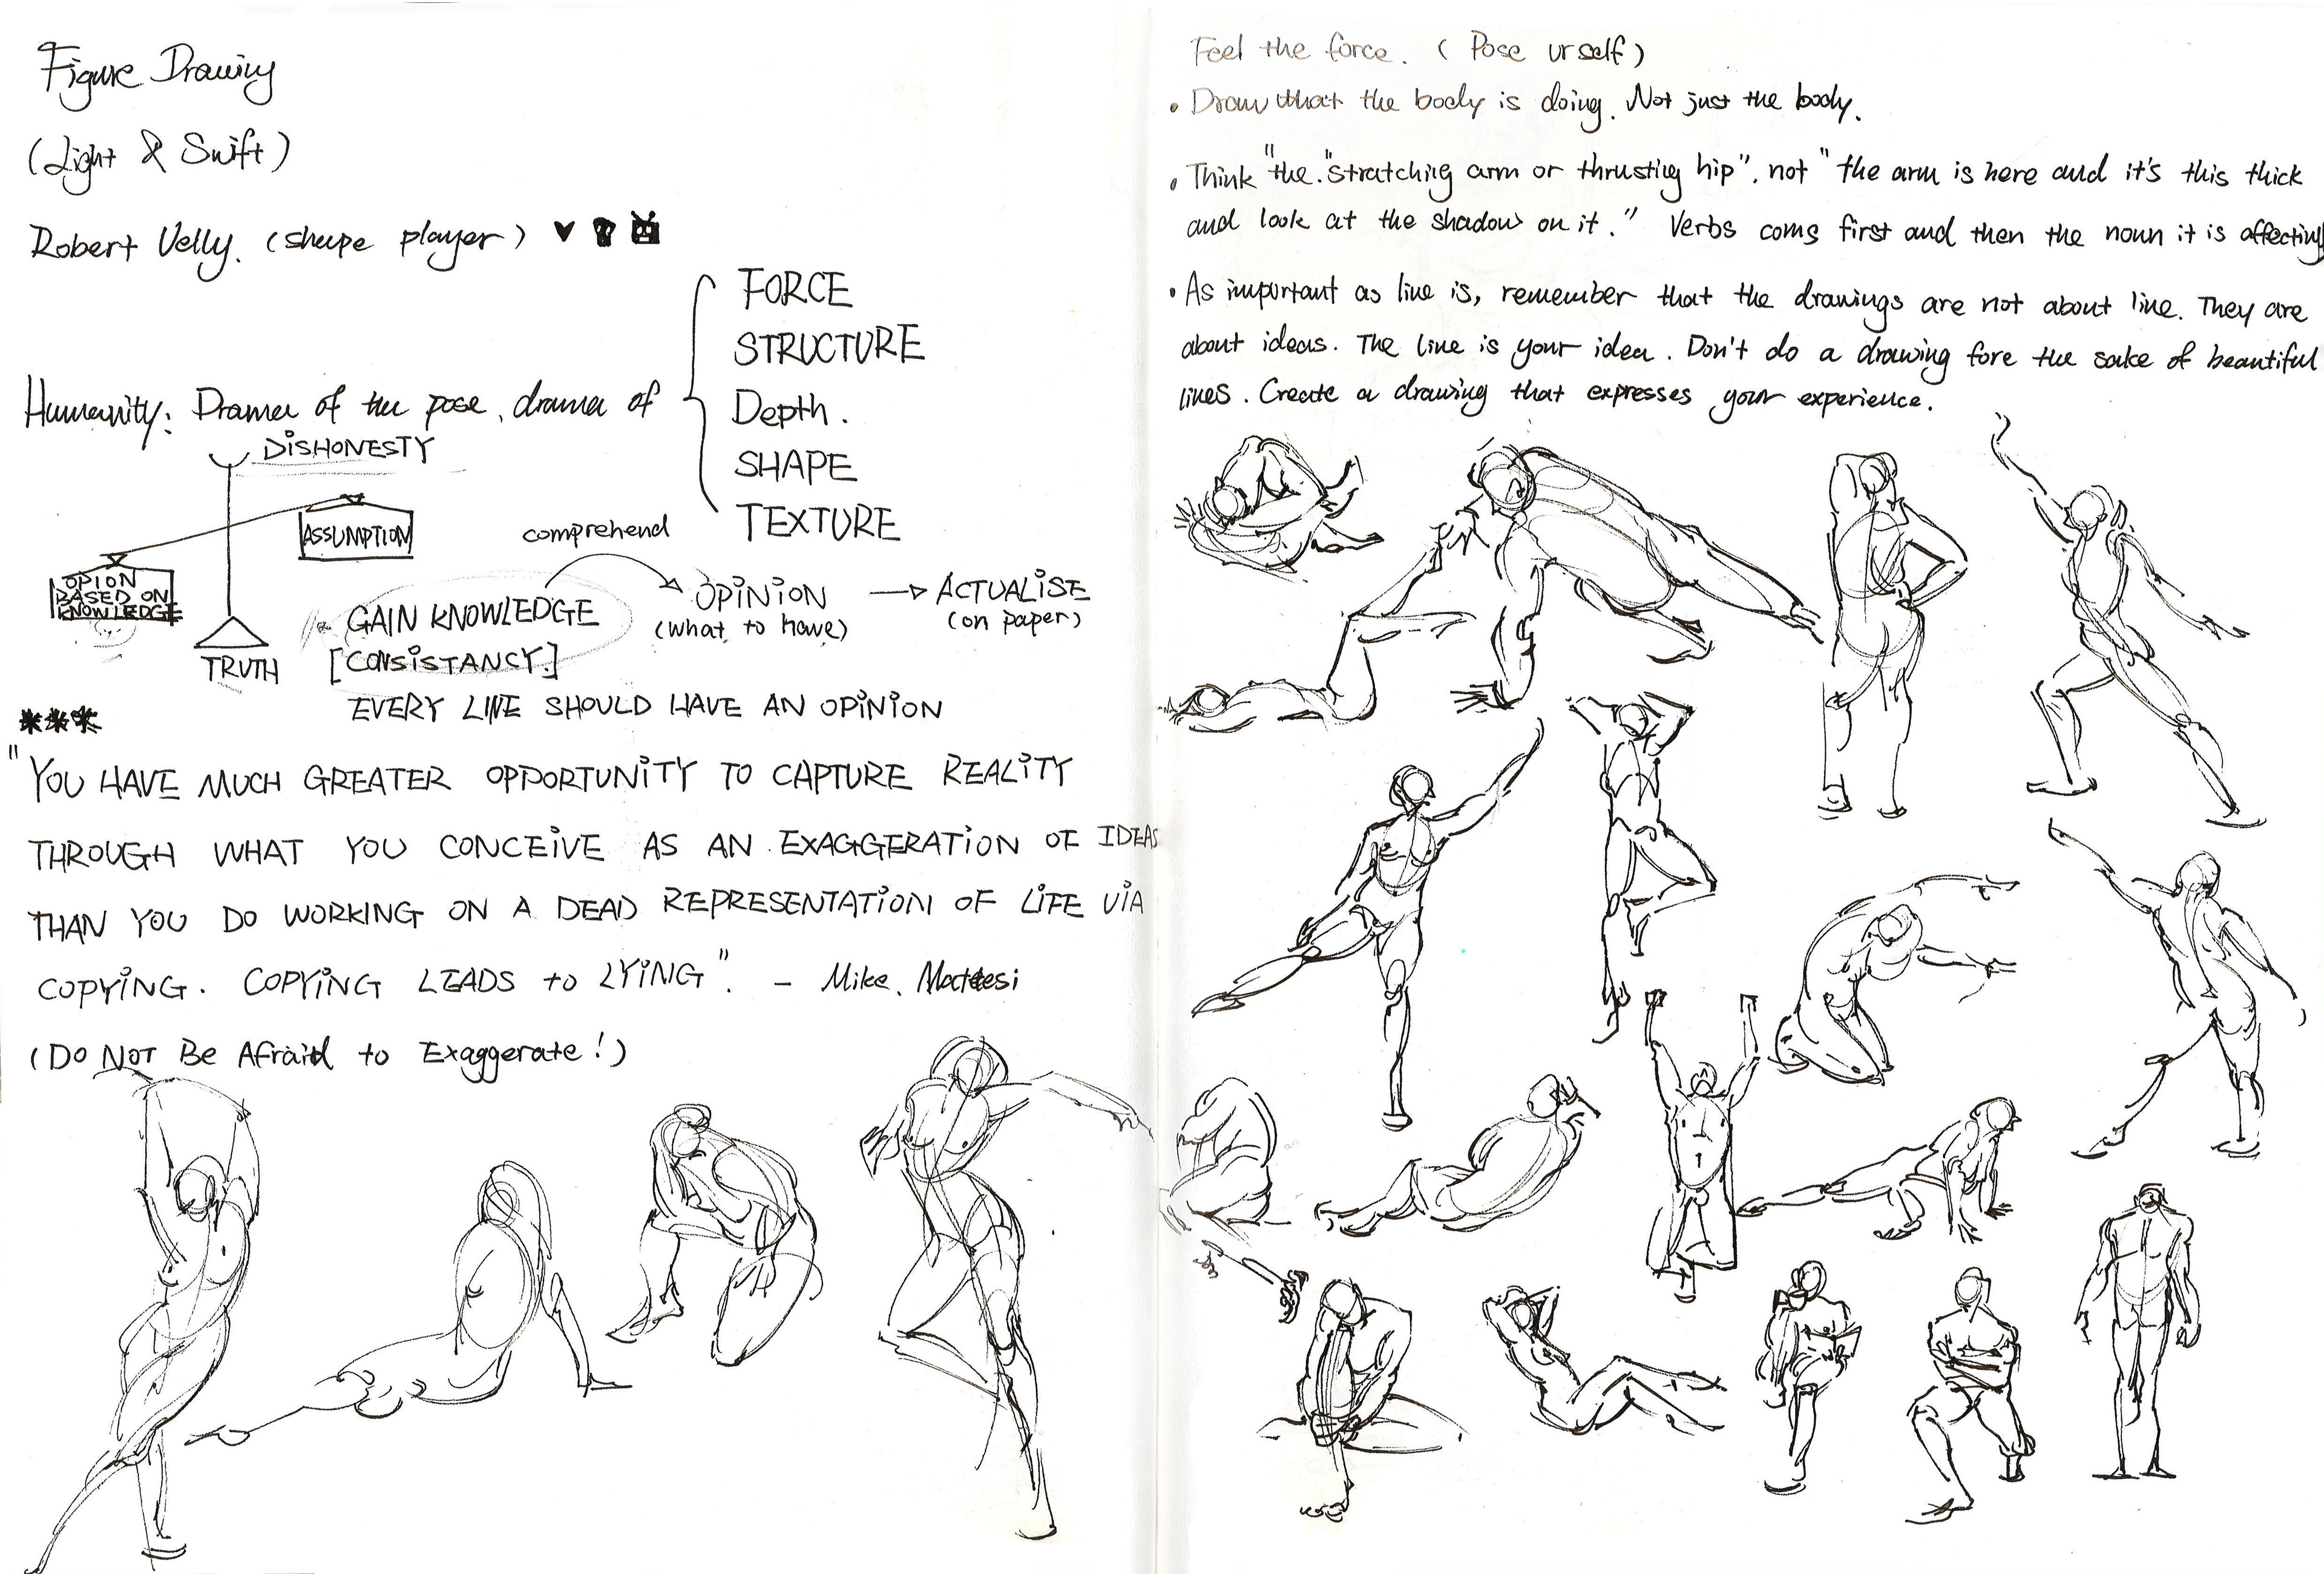 Figure Drawing
(Light & Swift)
Robert Velly. (shape player)
Humanity: Drama of the pose, drama of
FORCE
STRUCTURE
Depth.
SHAPE
TEXTURE
DISHONESTY
ASSUMPTION
OPION
BASED ON
KNOWLEDGE
TRUTH
comprehend
GAIN KNOWLEDGE
[CONSISTANCY.]
OPINION
(what to have)
ACTUALISE
(on paper)
EVERY LINE SHOULD HAVE AN OPINION
***
"YOU HAVE MUCH GREATER OPPORTUNITY TO CAPTURE REALITY
THROUGH WHAT YOU CONCEIVE AS AN EXAGGERATION OF IDEAS
THAN YOU DO WORKING ON A DEAD REPRESENTATION OF LIFE VIA
COPYING. COPYING LEADS to LYING". - Mike. Mattesi
(Do Not Be Afraid to Exaggerate!)
Feel the force. (Pose urself)
• Draw what the body is doing. Not just the body.
• Think "the "stratching arm or thrusting hip", not "the arm is here and it's this thick
and look at the shadow on it." Verbs coms first and then the noun it is affecting
• As important as line is, remember that the drawings are not about line. They are
about ideas. The line is your idea. Don't do a drawing fore the sake of beautiful
lines. Create a drawing that expresses your experience.